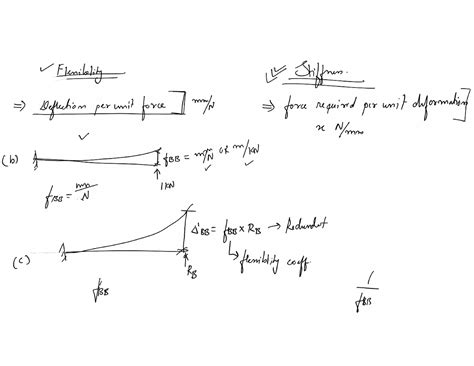 ✓ Flexibility
⇒ Deflection per unit force] mm/N
✓ Stiffness.
⇒ force required per unit deformation]
N/mm
(b)
fBB = m/N or m/kN
1 kN
fBB = mm/N
(c)
Δ'BB = fBB × RB → Redundant
↳ flexibility coeff
RB
fBB
1/fBB